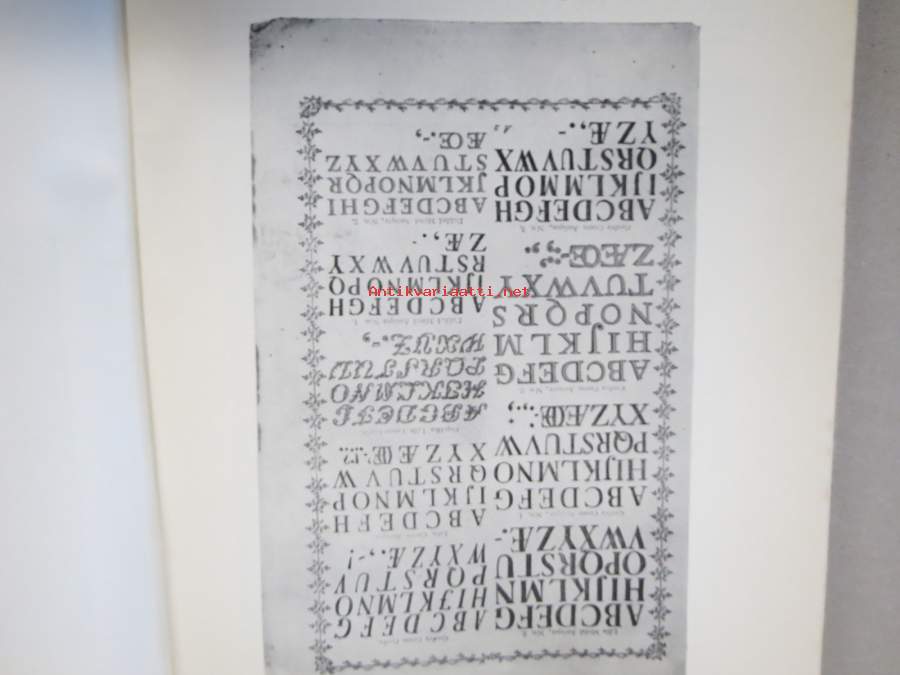 ABCDEFG
HIJKLMN
OPQRSTU
VWXYZÆ.-
ABCDEFG
HIJKLMNO
PQRSTUVW
XYZÆŒ:.,;
ABCDEFG
HIJKLM
NOPQRS
TUVWXY
ZÆŒ-:;,
ABCDEFGH
IJKLMMOP
QRSTUVWX
YZÆ.,-
ABCDEFG
HIJKLMNO
PQRSTUV
WXYZÆ.,-!
ABCDEFH
IJKLMNOP
QRSTUVW
XYZÆŒ-.:!?
ABCDEFG
HIKLMNO
PQRSTUV
WXYZ.-,
ABCDEFGH
IJKLMNOPQ
RSTUVWXY
ZÆ.,-
ABCDEFGHI
JKLMNOPQR
STUVWXYZ
ÆŒ.,-
Antikvariaatti.net